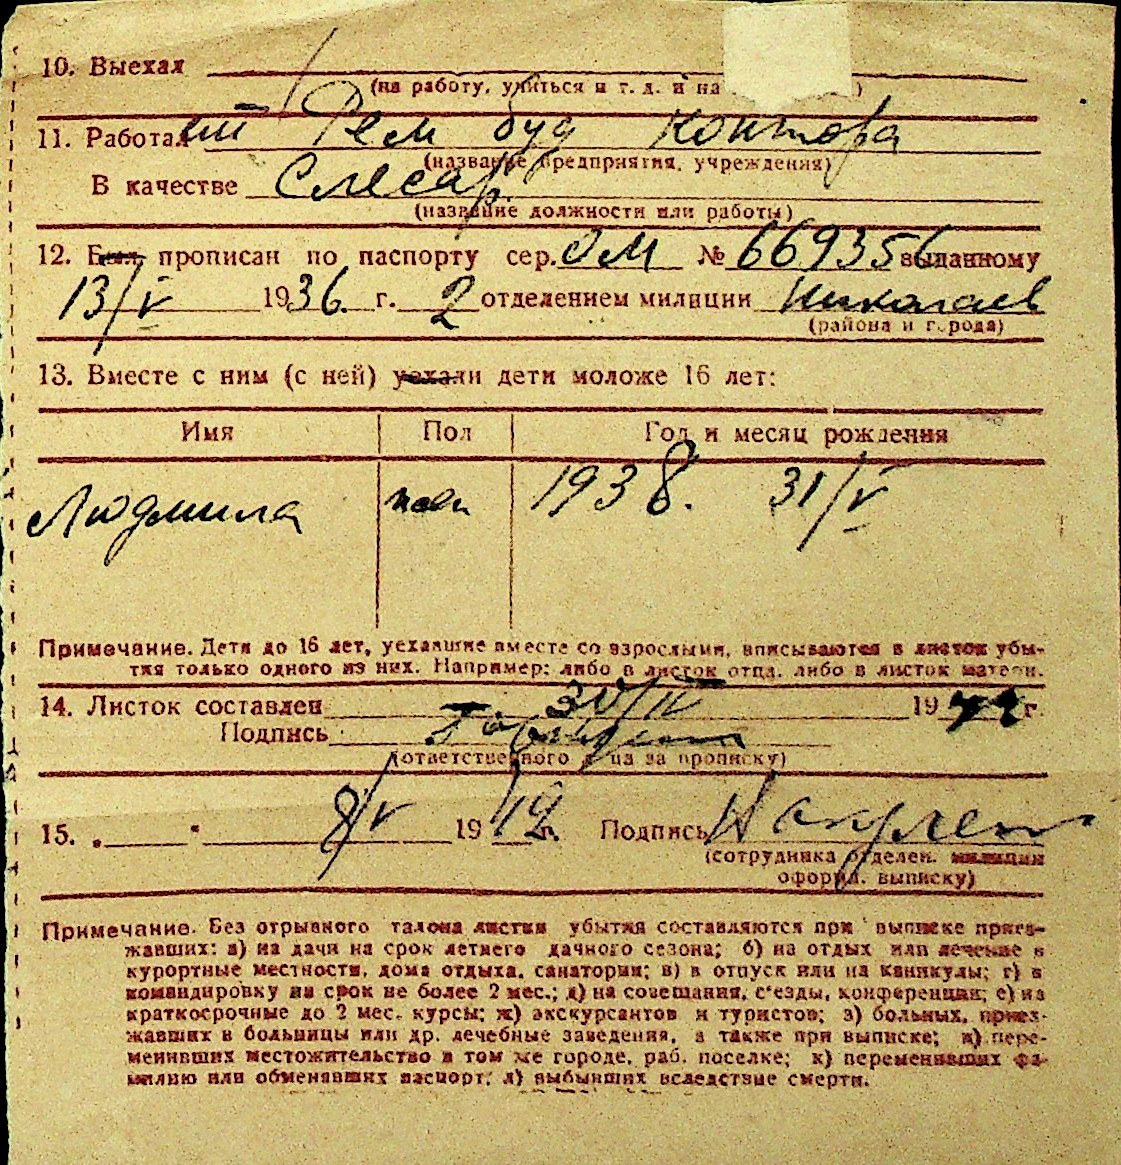 10. Выехал
(на работу, учиться и т. д. и на )
11. Работает Рем буд контора
(название предприятия, учреждения)
В качестве Слесар.
(название должности или работы)
12. Был прописан по паспорту сер. ОМ № 669356 выданному
13/V 1936. г. 2 отделением милиции Николаев
(района и города)
13. Вместе с ним (с ней) уехали дети моложе 16 лет:
Имя Пол Год и месяц рождения
Людмила жен 1938. 31/V
Примечание. Дети до 16 лет, уехавшие вместе со взрослыми, вписываются в листок убы-
тия только одного из них. Например: либо в листок отца, либо в листок матери.
14. Листок составлен 30/IV 1942 г.
Подпись
(ответственного лица за прописку)
15. „ " 8/V 1942 г. Подпись
(сотрудника отделен. милиции
оформ. выписку)
Примечание. Без отрывного талона листки убытия составляются при выписке приез-
жавших: а) на дачи на срок летнего дачного сезона; б) на отдых или лечение в
курортные местности, дома отдыха, санатории; в) в отпуск или на каникулы; г) в
командировку на срок не более 2 мес.; д) на совещания, с'езды, конференции; е) на
краткосрочные до 2 мес. курсы; ж) экскурсантов и туристов; з) больных, приез-
жавших в больницы или др. лечебные заведения, а также при выписке; и) пере-
менивших местожительство в том же городе, раб. поселке; к) переменивших фа-
милию или обменявших паспорт; л) выбывших вследствие смерти.